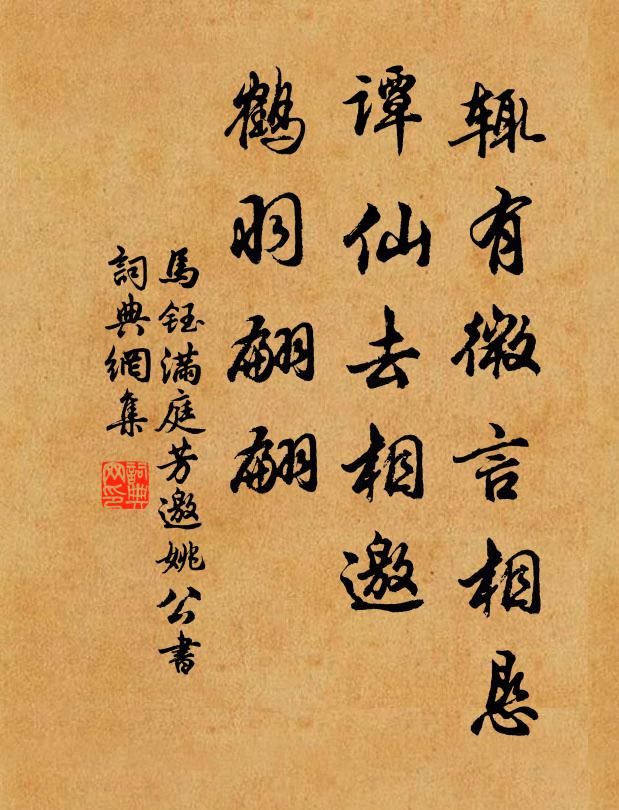 輙有微言相恳
譚仙去相邀
鶴羽翩翩
馬鈺滿庭芳邀姚公書
詞典網集
詞典
网印